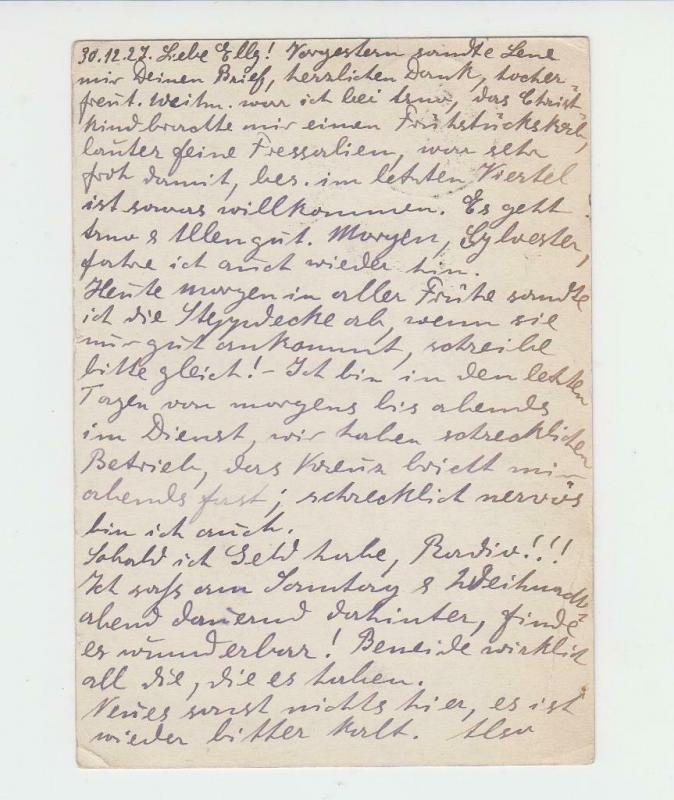 30.12.27. Liebe Elly! Vorgestern sandte Lene
mir Deinen Brief, herzlichen Dank, hocher-
freut. Weihn. war ich bei Arno, das Christ-
kind brachte mir einen Frühstückskorb,
lauter feine Fressalien, war sehr
froh damit, bes. im letzten Viertel
ist sowas willkommen. Es geht
Arno & Allen gut. Morgen, Sylvester,
fahre ich auch wieder hin.
Heute morgen in aller Frühe sandte
ich die Steppdecke ab, wenn sie
nur gut ankommt, schreibe
bitte gleich! – Ich bin in den letzten
Tagen von morgens bis abends
im Dienst, wir haben schrecklichen
Betrieb, das Kreuz bricht mir
abends fast; schrecklich nervös
bin ich auch.
Sobald ich Geld habe, Radio!!!
Ich sass am Sonntag & Weihnacht-
abend dauernd dahinter, finde
es wunderbar! Beneide wirklich
all die, die es haben.
Neues sonst nichts hier, es ist
wieder bitter kalt. Also